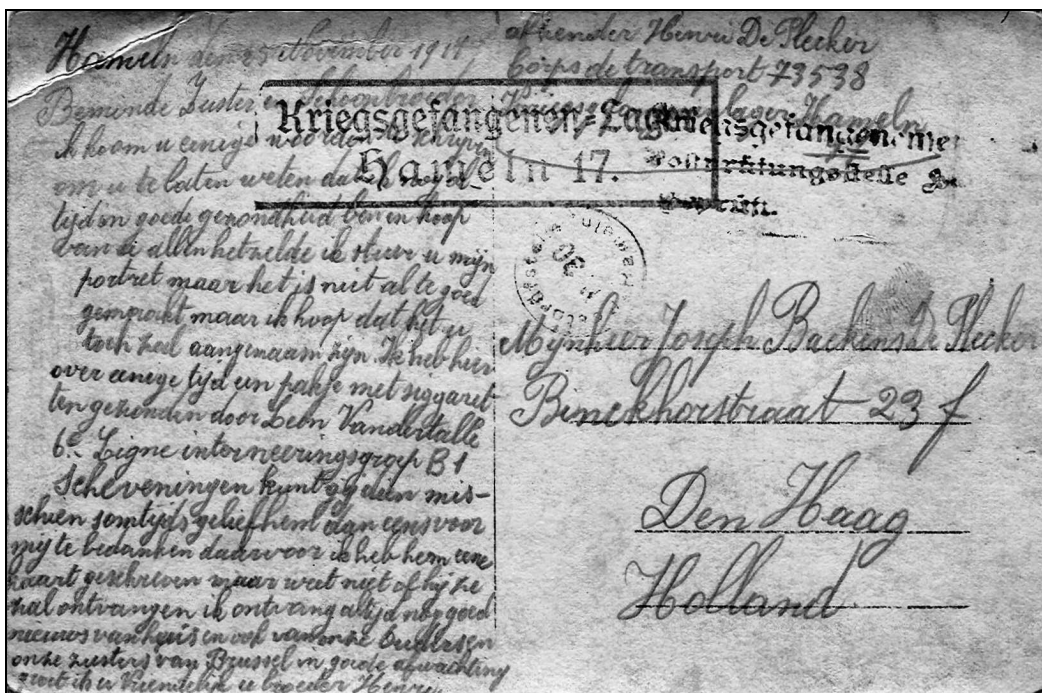 Hameln den 25 November 191
Beminde Zuster en Schoonbroeder
ik koom u eenige woorden te schrijven
om u te laten weten dat ik nog al
tijd in goede gezondheid ben en hoop
van u allen hetzelde ik stuur u mijn
portret maar het is niet al te goed
gemaakt maar ik hoop dat het u
toch zal aangenaam zijn. Ik heb hier
over eenige tijd een pakje met siggaret
ten gezonden door Leon Vandertalle
6e Ligne interneeringsgroep B1
Scheveningen kunt gy dien mis-
schien somtijds geliefhem aan eens voor
mij te bedanken daarvoor ik heb hem eene
kaart geschreven maar weet niet of hij ze
zal ontvangen ik ontvang altijd nog goed
nieuws van huis en ook van onze Ouders en
onze zusters van Brussel in goede afwachting
groet ik u Vriendelijk u broeder Henri
afzender Henri De Plecker
Corps de transport 73538
Kriegsgefangenenlager Hameln
Kriegsgefangenen-Lager
Hameln 17.
Geprüft.
30
Mijnheer Joseph Baekens De Plecker
Binckhorstraat 23 f
Den Haag
Holland